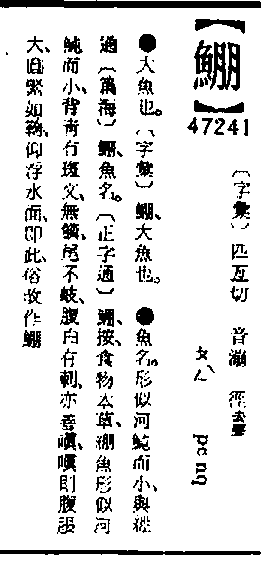 【䱟】
47241
〔字彙〕匹互切 音漰 徑去聲
ㄆㄥˋ peng
●大魚也。〔字彙〕䱟、大魚也。 ●魚名。形似河魨而小、與
通〔篇海〕䱟、魚名。〔正字通〕䱟、按、食物本草、魚形似河
魨而小、背靑有斑文、無鱗、尾不岐、腹白有刺、亦善嗔、嗔則腹張
大、圓緊如鞠、仰浮水面、卽此、俗故作䱟